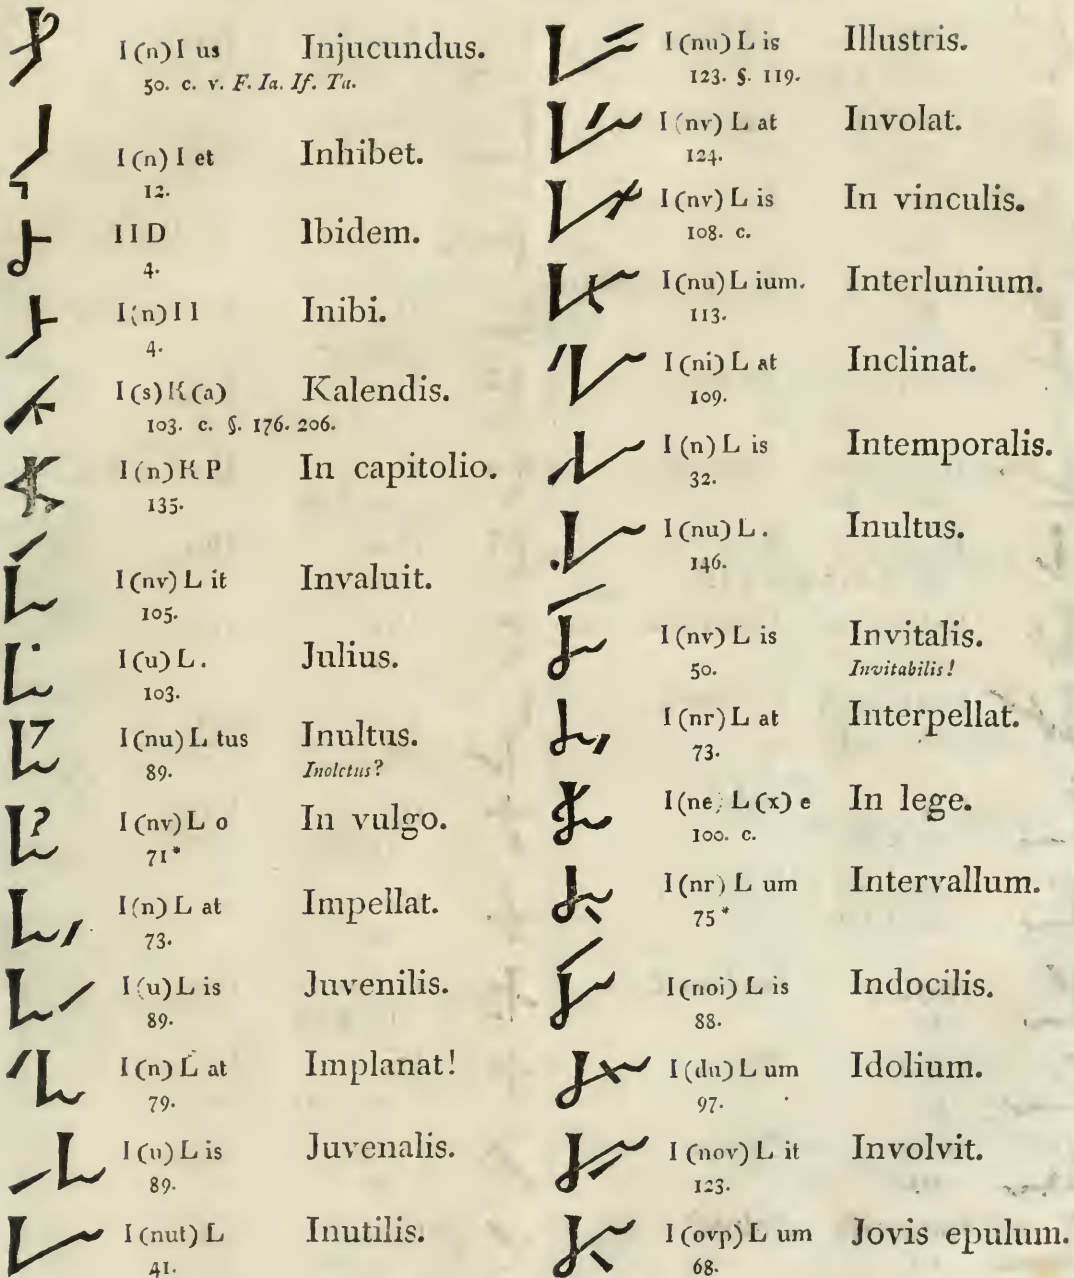 I (n) I us Injucundus.
50. c. v. F. Ia. If. Ta.
I (n) I et Inhibet.
12.
I I D Ibidem.
4.
I (n) I I Inibi.
4.
I (s) K (a) Kalendis.
103. c. §. 176. 206.
I (n) K P In capitolio.
135.
I (nv) L it Invaluit.
105.
I (u) L . Julius.
103.
I (nu) L tus Inultus.
89. Inoletus?
I (nv) L o In vulgo.
71*
I (n) L at Impellat.
73.
I (u) L is Juvenilis.
89.
I (n) L at Implanat!
79.
I (u) L is Juvenalis.
89.
I (nut) L Inutilis.
41.
I (nu) L is Illustris.
123. §. 119.
I (nv) L at Involat.
124.
I (nv) L is In vinculis.
108. c.
I (nu) L ium. Interlunium.
113.
I (ni) L at Inclinat.
109.
I (n) L is Intemporalis.
32.
I (nu) L . Inultus.
146.
I (nv) L is Invitalis.
50. Invitabilis!
I (nr) L at Interpellat.
73.
I (ne) L (x) e In lege.
100. c.
I (nr) L um Intervallum.
75*
I (noi) L is Indocilis.
88.
I (du) L um Idolium.
97.
I (nov) L it Involvit.
123.
I (ovp) L um Jovis epulum.
68.